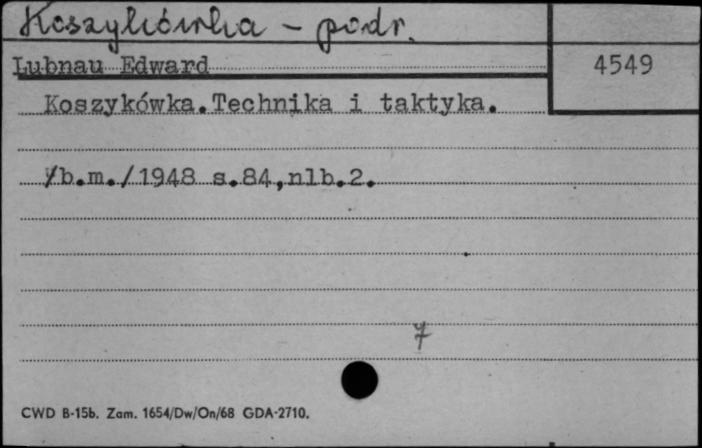 Koszykówka - podr.
Lubnau Edward
4549
Koszykówka.Technika i taktyka.
/b.m./1948 s.84,nlb.2.
7
CWD B-15b. Zam. 1654/Dw/On/68 GDA-2710.